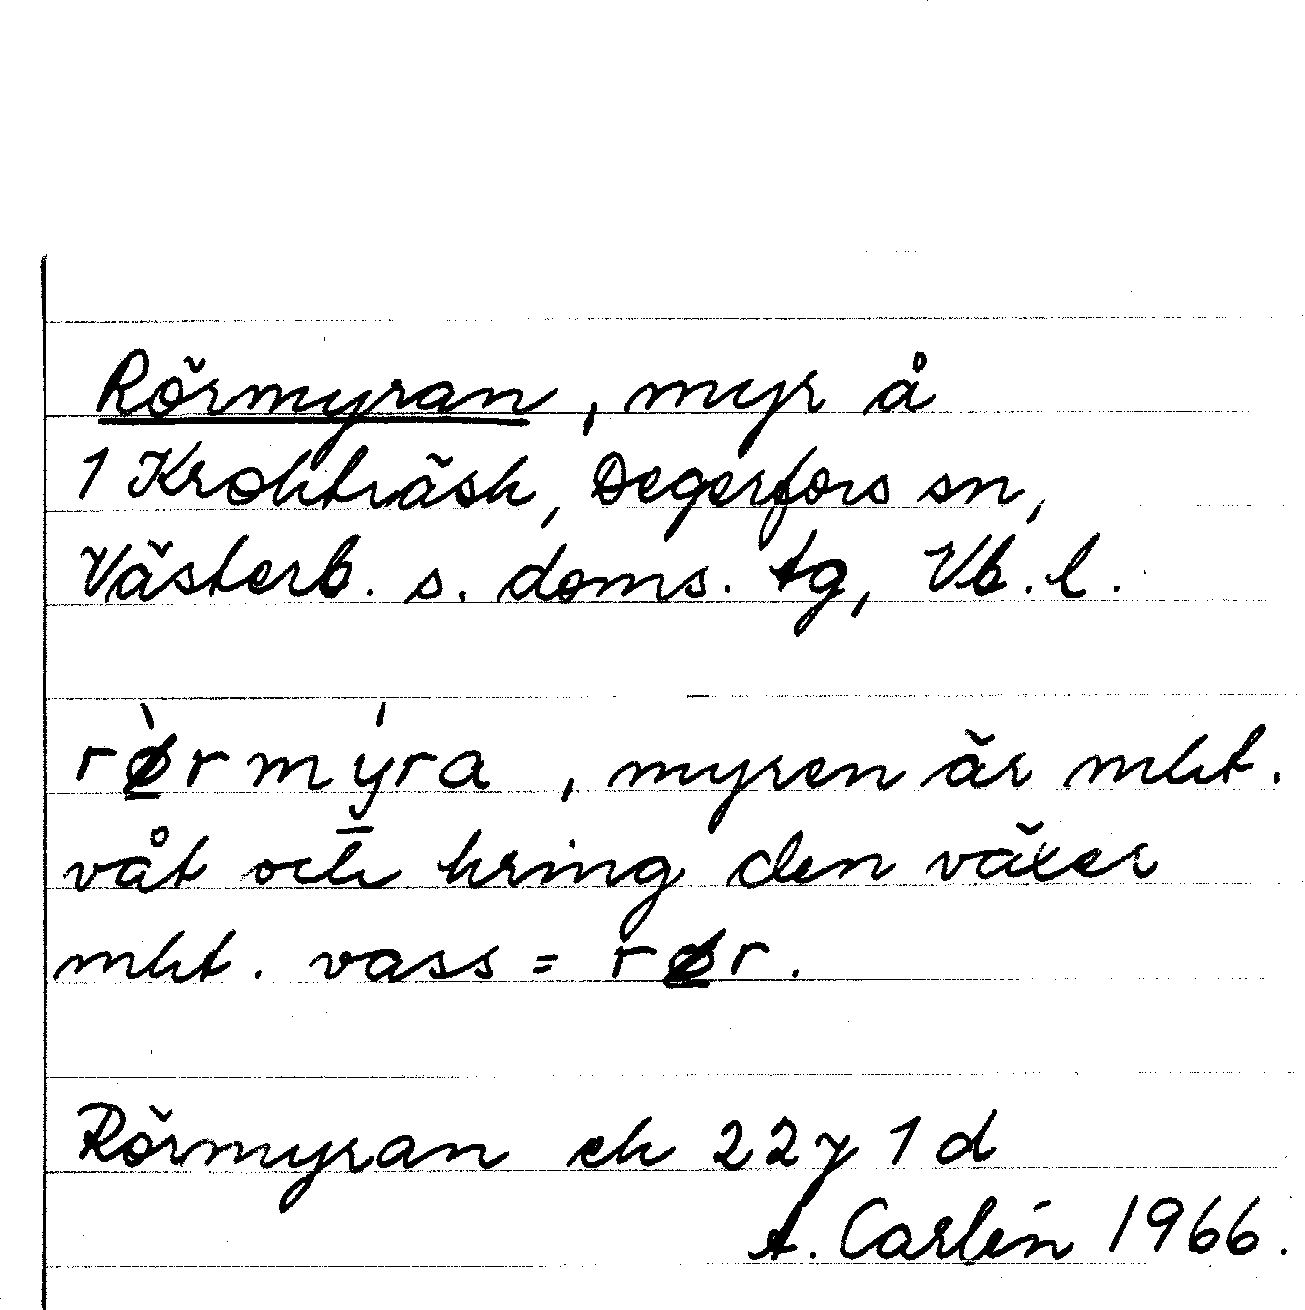 Rörmyran, myr å
1 Krokträsk, Degerfors sn,
Västerb. s. doms. tg, Vb. l.
rø̀rmýra, myren är mkt.
våt och kring den växer
mkt. vass = rør.
Rörmyran ek 22y 1 d
A. Carlén 1966.